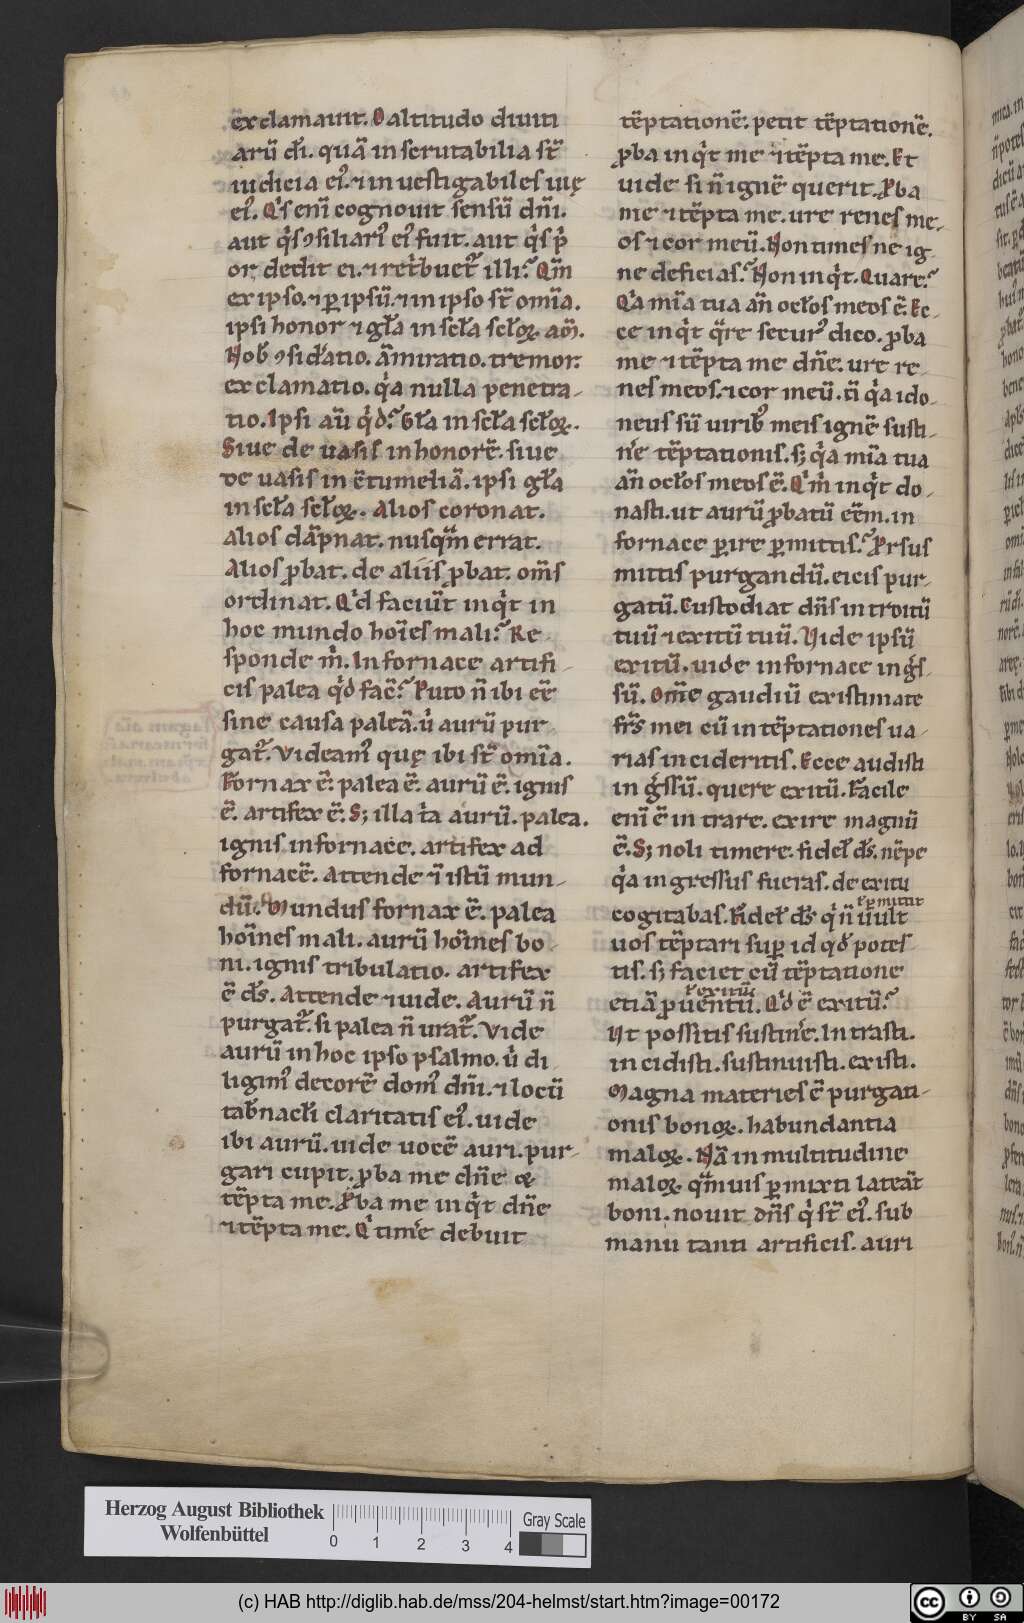 exclamauit. O altitudo diuiti
arū dī. quā inscrutabilia st̄
iudicia ei᷒. ⁊ inuestigabiles uię
ei᷒. Qͥs enī cognouit sensū dn̄i.
aut qͥs ꝯsiliari᷒ ei᷒ fuit. aut qͥs pͥ
or dedit ei. ⁊ retͥbuet̄ illi? Qm̄
ex ipso. ⁊ ꝑ ipsū. ⁊ in ipso st̄ omīa.
ipsi honor ⁊ gl̄a in scl̄a scl̄oꝝ. am̄.
Nob̄ ꝯsid̄atio. āmiratio. tremor.
exclamatio. qͥa nulla penetra-
tio. Ipsi aū qͥd? Gl̄a in scl̄a scl̄oꝝ.
Siue de uasis in honorē. siue
de uasis in ētumeliā. ipsi gl̄a
in scl̄a scl̄oꝝ. Alios coronat.
alios dāpnat. nusqᷓm errat.
Alios ꝓbat. de aliis ꝓbat. om̄s
ordinat. Qͥd faciūt inqͥt in
hoc mundo hoīes mali? Re-
sponde mͥ. In fornace artifi-
cis palea qͥd fac̄? Puto n̄ ibi eē
sine causa paleā. uͥ aurū pur-
gat̄. Videam᷒ quę ibi st̄ omīa.
Fornax ē. palea ē. aurū ē. ignis
ē. artifex ē. Sꝫ illa tͥa aurū. palea.
ignis in fornace. artifex ad
fornacē. Attende ī istū mun-
dū. Mundus fornax ē. palea
hoīnes mali. aurū hoīnes bo-
ni. ignis tribulatio. artifex
ē ds̄. Attende ⁊ uide. Aurū n̄
purgat̄. si palea n̄ urat̄. Vide
aurū in hoc ipso psalmo. uͥ di
ligim᷒ decorē dom᷒ dn̄i. ⁊ locū
tab̄nacl̄i claritatis ei᷒. uide
ibi aurū. uide uocē auri. pur-
gari cupit. ꝓba me dn̄e &
tēpta me. Ꝓba me inqͥt dn̄e
⁊ tēpta me. Qͥ timēe debuit
tēptationē. petit tēptationē.
ꝓba inqͥt me ⁊ tēpta me. Et
uide si n̄ ignē querit. Ꝓba
me ⁊ tēpta me. ure renes me-
os ⁊ cor meū. Non times ne ig-
ne deficias? Non inqͥt. Quare?
Qͥa mīa tua an̄ ocl̄os meos ē. Ec-
ce inqͥt qᷓre secur᷒ dico. ꝓba
me ⁊ tēpta me dn̄e. ure re-
nes meos. ⁊ cor meū. n̄ qͥa ido-
neus sū uirib᷒ meis ignē susti-
nēe tēptationis. sꝫ qͥa mīa tua
an̄ ocl̄os meos ē. Qͥ mͥ inqͥt do-
nasti. ut aurū ꝓbatū eēm. in
fornace ꝑire ꝑmittis? Prsus
mittis purgandū. eicis pur-
gatū. Custodiat dn̄s introitū
tuū ⁊ exitū tuū. Vide ipsū
exitū. uide in fornace ingͤs
sū. Om̄e gaudiū existimate
fr̄s mei cū in tēptationes ua-
rias incideritis. Ecce audisti
ingͤssū. quere exitū. Facile
enī ē intrare. exire magnū
ē. Sꝫ noli timere. fidel̄ ds̄. nēpe
qͥa ingressus fueras. de exitu
cogitabas. Fidel̄ ds̄ qͥ n̄ uult
ꝉ ꝑmittit
uos tēptari suꝑ id qd̄ potes
tis. sꝫ faciet cū tēptatione
ꝉ exitū
etiā ꝓuentū. Qͥd ē exitū?
Vt possitis sustinēe. Intrasti.
incidisti. sustinuisti. existi.
Magna materies ē purgati-
onis bonoꝝ. habundantia
maloꝝ. Nā in multitudine
maloꝝ qᷓmuis ꝑmixti lateāt
boni. nouit dn̄s qͥ st̄ ei᷒. sub
manu tanti artificis. auri
Herzog August Bibliothek
Wolfenbüttel
0 1 2 3 4
Gray Scale
(c) HAB http://diglib.hab.de/mss/204-helmst/start.htm?image=00172
cc BY SA